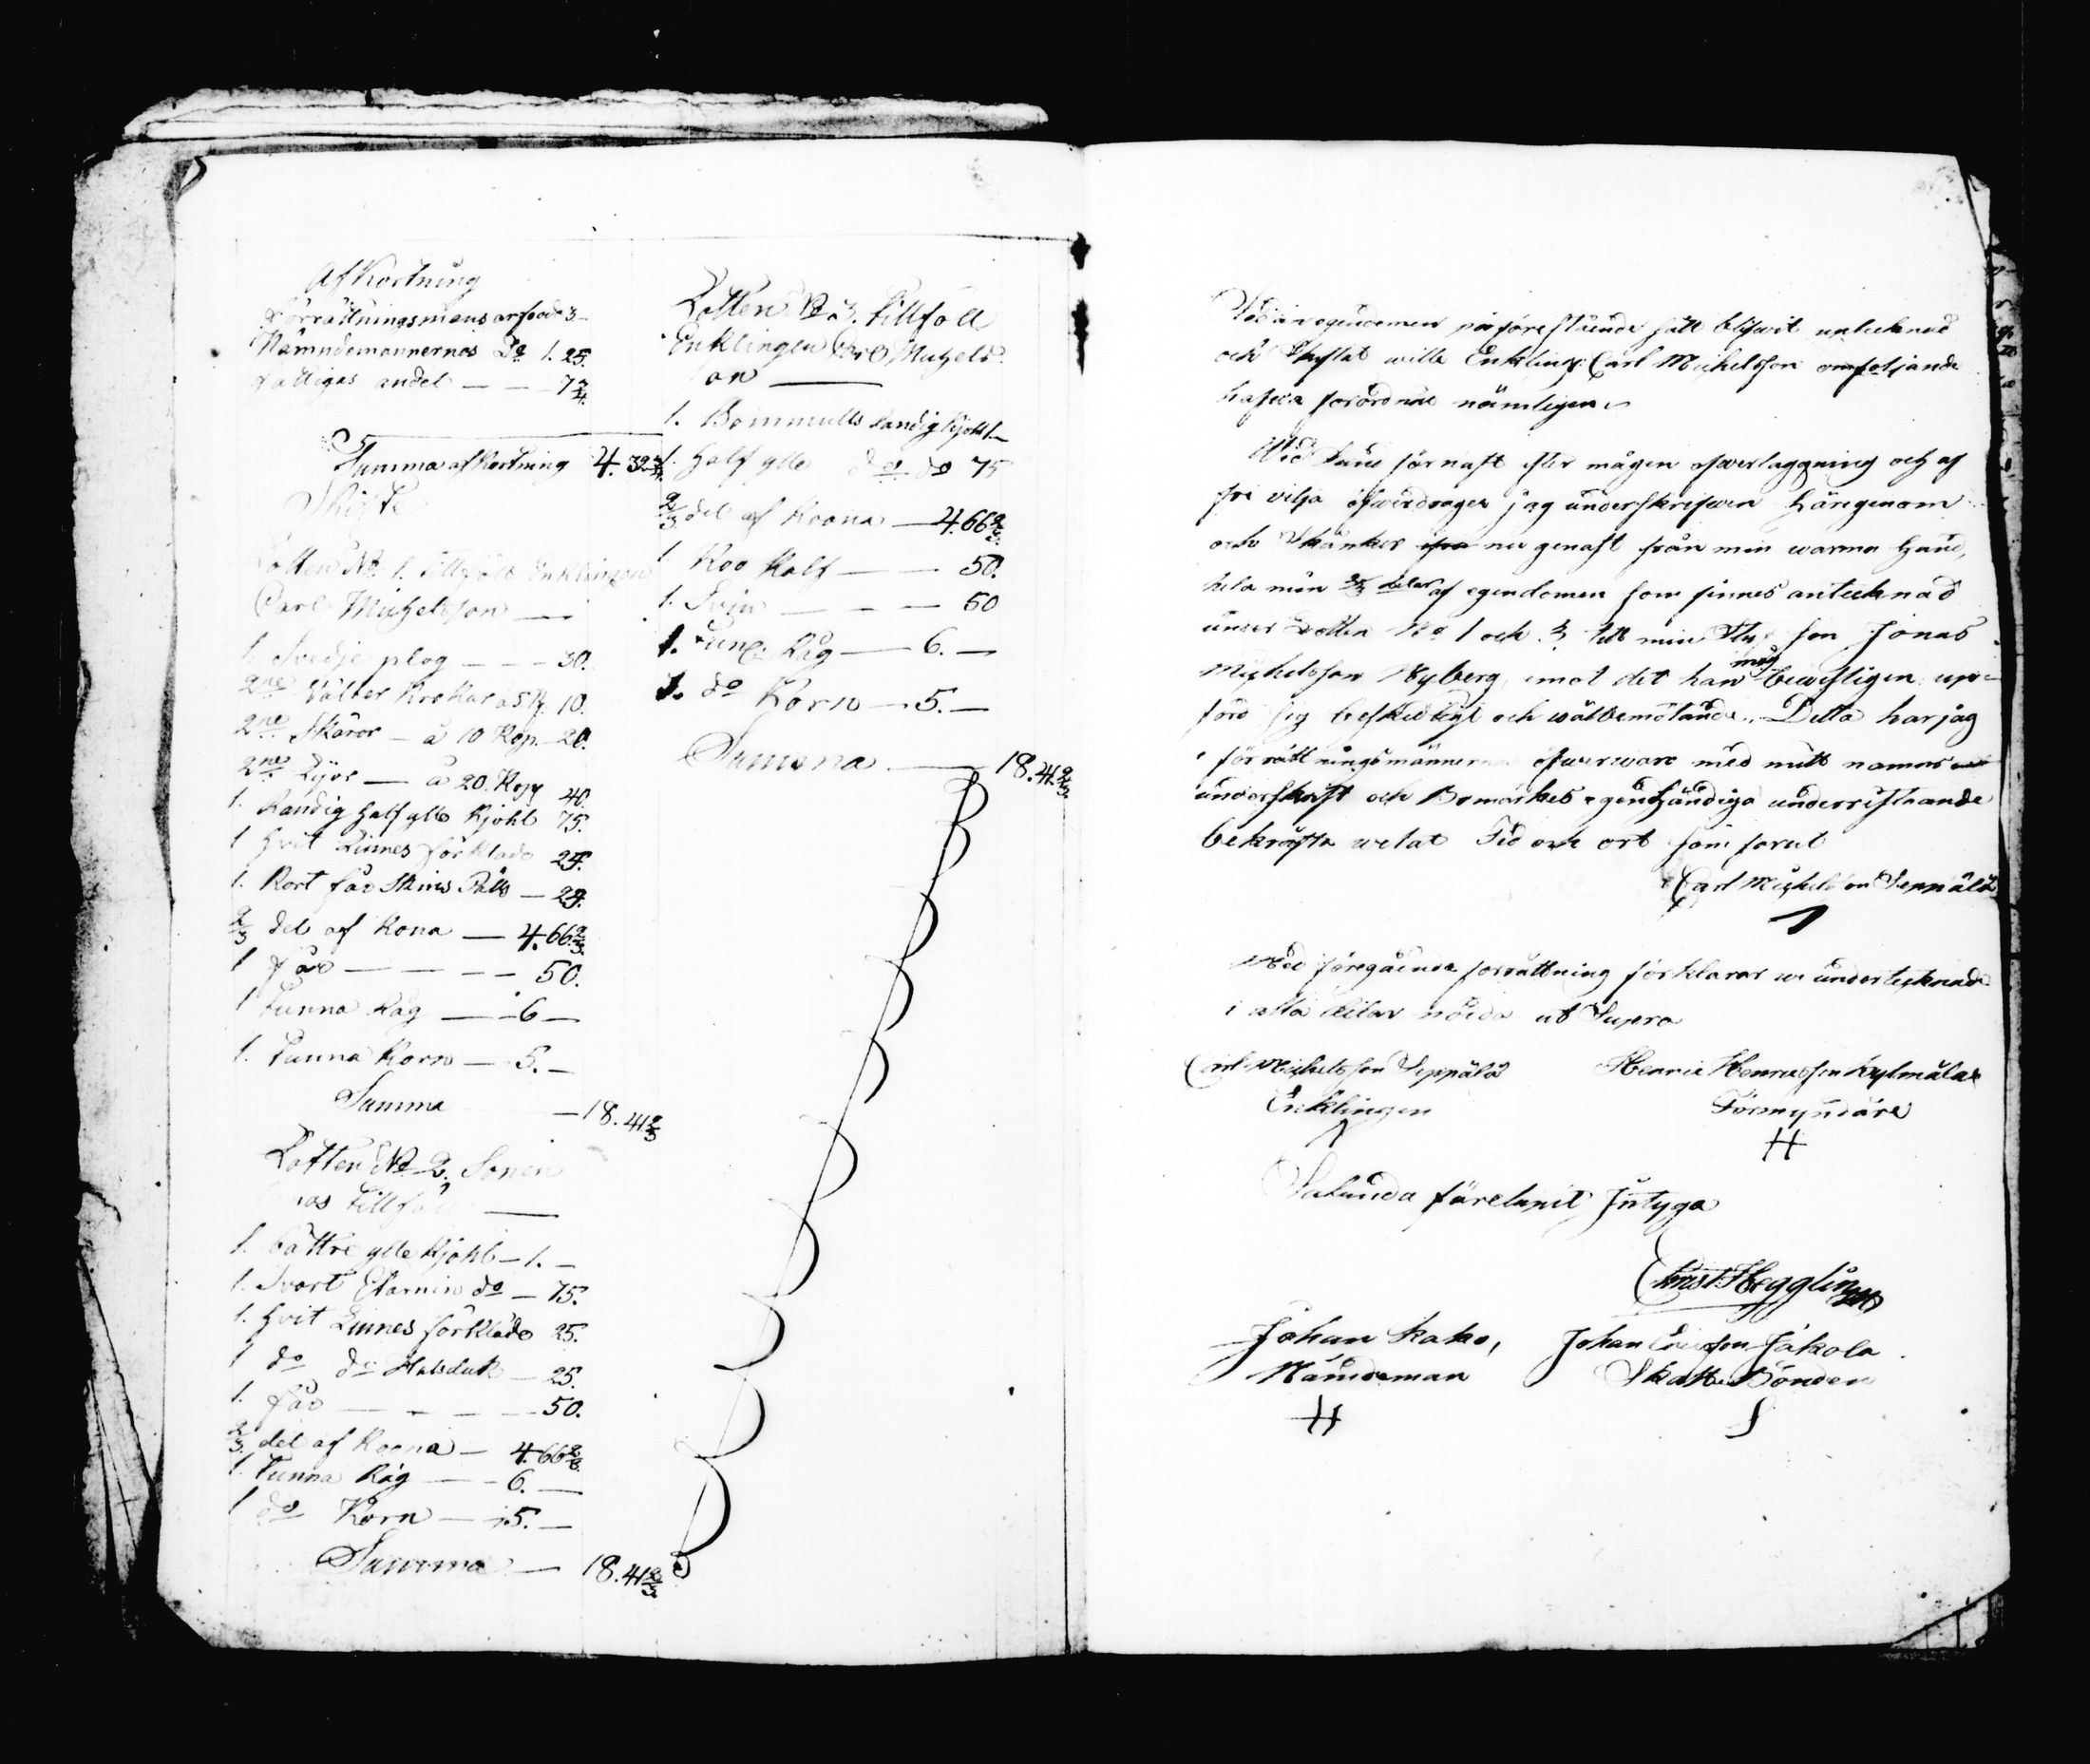 Afkortning
Förrättningsmans arfvode 3–
Nämndemannernas Do 1. 25.
fattigas andel — — 7 3/4
Summa afkortning 4. 32 3/4
Skifte
Lotten No 1. tillföll Enklingen
Carl Michelsson —
1. Svedje plog — — — 30.
2ne Välter krokar à 5 k. 10.
2ne Skäror — à 10 Kop. — 20.
2ne Lijor — à 20. Kop 40.
1. Randig half ylle Kjohl 75.
1 hvit Linnes förkläde 25.
1. Kort får Skins Päls — 25.
2/3 del af Kona — 4.66 2/3
1 får — — — — 50.
1 tunna Råg — — 6 —
1. Tunna Korn — 5. —
Summa — 18. 41 2/3
Lotten No 2. Sonen
Jonas tillföll —
1. bättre ylle Kjohl — 1. —
1. Svart Etamin do — 75.
1. hvit Linnes förkläde 25.
1 do do Halsduk — 25.
1. får — — — — 50.
2/3 del af Koona — 4.66 2/3
1. Tunna Råg — — 6. —
1 do Korn — 5. —
Summa — 18. 41 2/3
Lotten No 3. tillföll
Enklingen Carl Michels-
son —
1. Bommulls randig kjohl 1 —
1. half ylle do do 75
2/3 del af Koona — 4.66 2/3
1 Koo Kalf — — 50.
1. Svin — — — 50
1. Tuna Råg — 6. —
1. do Korn — 5. —
Summa — 18. 41 2/3
Sedan egendomen på förestående sätt blifwit antecknad
och Skiftat wille Enkling: Carl Michelsson omfoljande
hafwa förordnat nämligen
Wid sundt förnuft efter mogen öfverläggning och af
fri vilja öfwerdrager jag underskrifwen härigenom
och Skänker nu genast från min warma hand,
hela min 2/3 delar af egendomen som finnes antecknad
under Lotten No 1 och 3 till min Styf son Jonas
Michelsson Nyberg, emot det han mig bewisligen up-
ford sig beskedligt och wälbemötande. Detta har jag
i förrättningsmännernas öfwerwaro med mitt namns
underskrift och Bomärkes egenhändiga underristande
bekräfta welat Tid och ort som forut
Carl Michelsson Seppälä
Med föregående forrättning förklarar wi undertecknade
i alla delar nöjda ut Supra
Carl Michelsson Seppälä Henric Henricsson Kylmälä
Enklingen Förmyndare
H
Salunda förelupit Intyga
Christ: Hegglin
Johan Kako, Johan Ericsson Jakola
Nämdeman Skatte Bonden
H